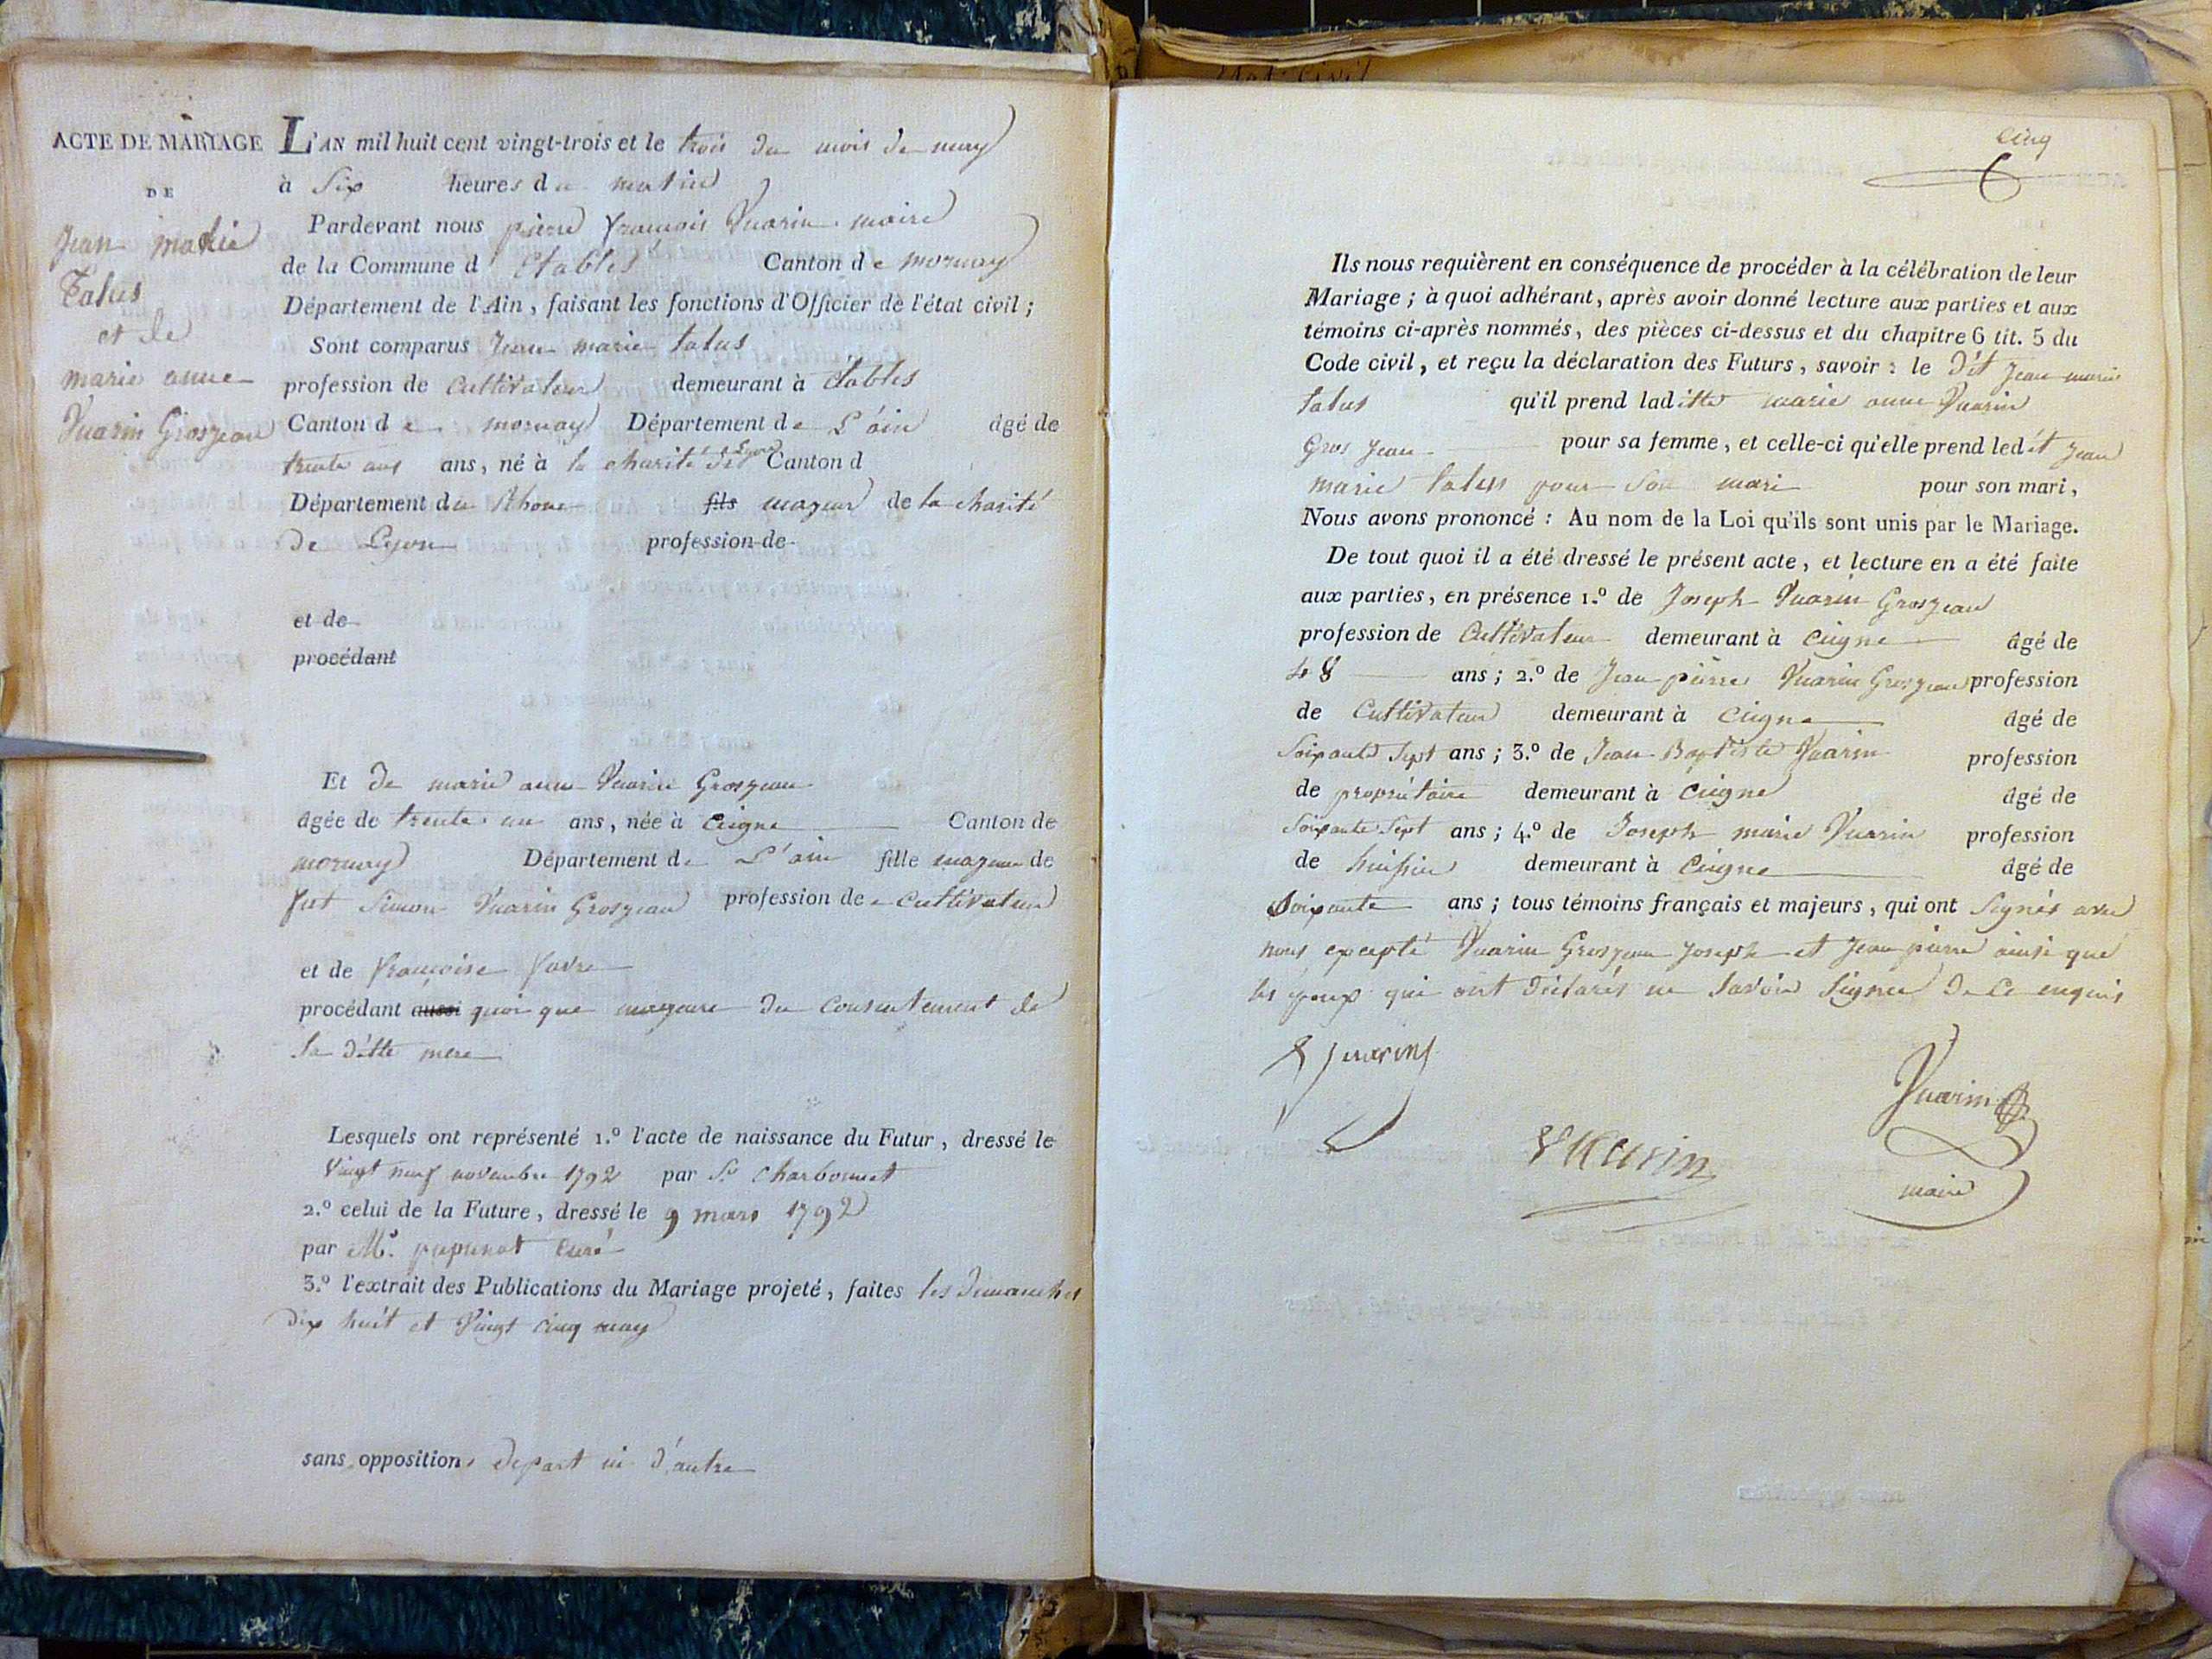 ACTE DE MARIAGE
DE
Jean marie
Talus
et de
marie anne
Vuarin Grosjean
L'AN mil huit cent vingt-trois et le trois du mois de may
à Six heures du matin
Pardevant nous pierre françois Vuarin maire
de la Commune d'Etables Canton de mornay
Département de l'Ain, faisant les fonctions d'Officier de l'état civil;
Sont comparus Jean marie talus
profession de Cultivateur demeurant à étables
Canton de mornay Département de L'ain âgé de
trente ans ans, né à la charité de Lyon Canton d
Département du Rhone fils majeur de la charité
de Lyon profession de
et de
procédant
Et de marie anne Vuarin Grosjean
âgée de trente un ans, née à Ceigne Canton de
mornay Département de L'ain fille majeure de
fut Simon Vuarin Grosjean profession de Cultivateur
et de françoise favre
procédant aussi quoi que majeure du Consentement de
sa ditte mere
Lesquels ont représenté 1.º l'acte de naissance du Futur, dressé le
Vingt neuf novembre 1792 par Sr Charbonnet
2.º celui de la Future, dressé le 9 mars 1792
par Mr. Curé
3.º l'extrait des Publications du Mariage projeté, faites les dimanches
dix huit et Vingt cinq may
sans opposition depart ni d'autre
Cinq
Ils nous requièrent en conséquence de procéder à la célébration de leur
Mariage; à quoi adhérant, après avoir donné lecture aux parties et aux
témoins ci-après nommés, des pièces ci-dessus et du chapitre 6 tit. 5 du
Code civil, et reçu la déclaration des Futurs, savoir: le dit Jean marie
talus qu'il prend laditte marie anne Vuarin
Gros Jean pour sa femme, et celle-ci qu'elle prend ledit Jean
marie talus pour Son mari pour son mari,
Nous avons prononcé: Au nom de la Loi qu'ils sont unis par le Mariage.
De tout quoi il a été dressé le présent acte, et lecture en a été faite
aux parties, en présence 1.º de Joseph Vuarin Grosjean
profession de Cultivateur demeurant à Ceigne âgé de
48 ans; 2.º de Jean pierre Vuarin Grosjean profession
de Cultivateur demeurant à Ceigne âgé de
Soixante Sept ans; 3.º de Jean Baptiste Vuarin profession
de propriétaire demeurant à Ceigne âgé de
Soixante Sept ans; 4.º de Joseph marie Vuarin profession
de huissier demeurant à Ceigne âgé de
Soixante ans; tous témoins français et majeurs, qui ont Signés avec
nous excepté Vuarin Grosjean Joseph et Jean pierre ainsi que
les epoux qui ont déclarés ne Savoir Signer de ce enquis
Vuarin
Vuarin
maire